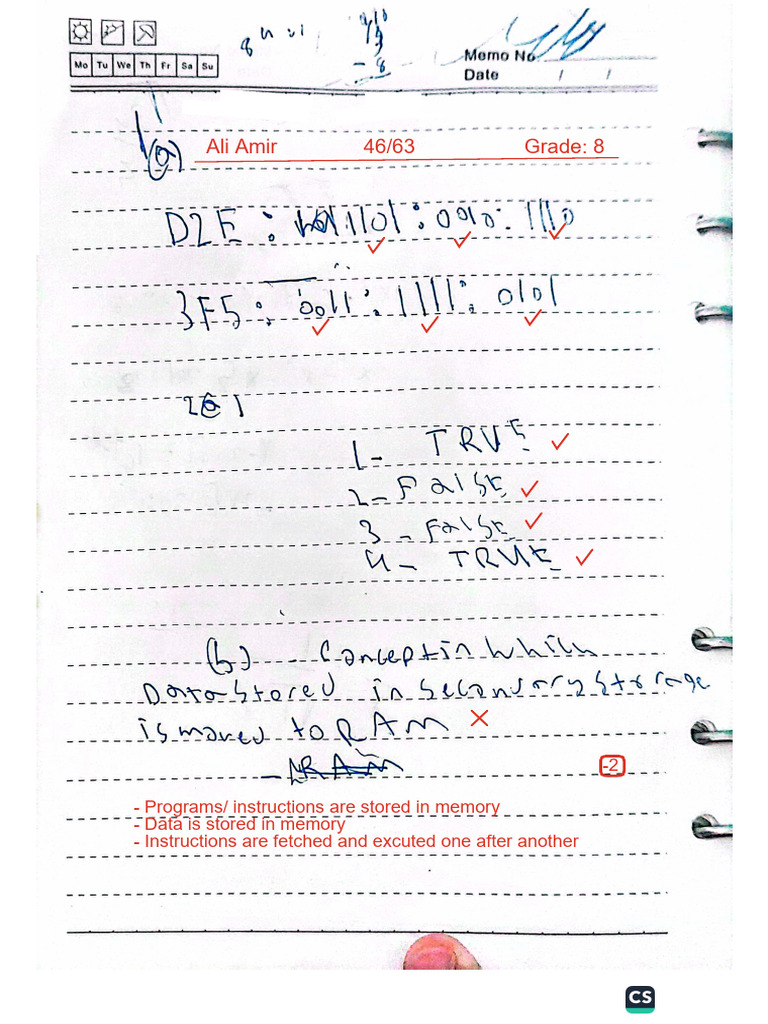 Memo No.
Mo Tu We Th Fr Sa Su
Date / /
- 8
1(a)
Ali Amir 46/63 Grade: 8
D2E : 1101 : 0010 : 1110
3F5 : 0011 : 1111 : 0101
1- TRUE
2- False
3 - False
4- TRUE
(b) - Concept in which
Data stored in secondary storage
is moved to RAM
- RAM
-2
- Programs/ instructions are stored in memory
- Data is stored in memory
- Instructions are fetched and excuted one after another
CS